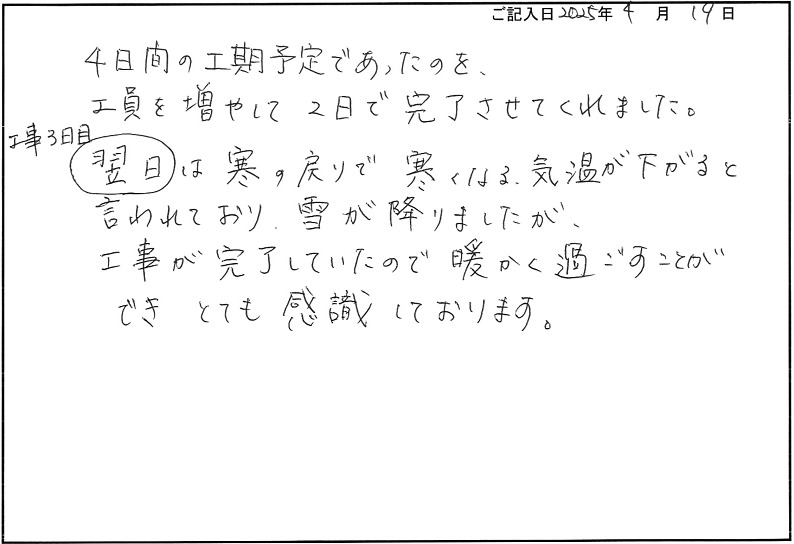 ご記入日2025年 4 月 19 日
4日間の工期予定であったのを、
工員を増やして 2日で 完了させてくれました。
工事3日目
翌日は 寒の戻りで 寒くなる、気温が下がると
言われており、雪が降りましたが、
工事が完了していたので 暖かく過ごすことが
でき とても 感識しております。